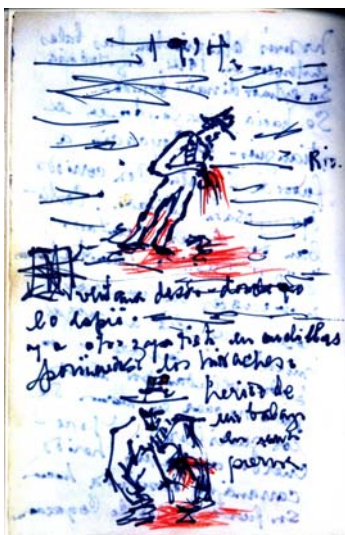 1914.
Rio.
ventana desde donde yo
lo espié.
y a otro zapatista en cuclillas
poniendose los huaches.
herido de
un balazo
en una
pierna.